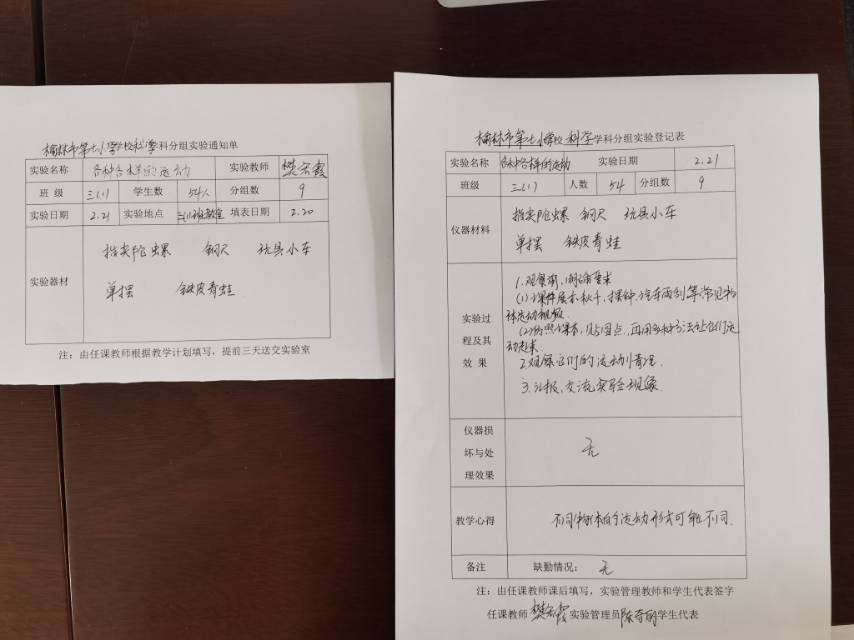 榆林市第七小学学校科学科分组实验通知单
实验名称 各种各样的运动 实验教师 樊云霞
班 级 三(1) 学生数 54人 分组数 9
实验日期 2.21 实验地点 三(1)班教室 填表日期 2.20
实验器材
指尖陀螺 钢尺 玩具小车
单摆 铁皮青蛙
注：由任课教师根据教学计划填写，提前三天送交实验室
榆林市第七小学校科学学科分组实验登记表
实验名称 各种各样的运动 实验日期 2.21
班级 三(1) 人数 54 分组数 9
仪器材料
指尖陀螺 钢尺 玩具小车
单摆 铁皮青蛙
实验过
程及其
效 果
1.观察前,明确要求
(1)课件展示秋千、摆钟、汽车雨刮等常见物
体运动视频.
2.观察它们的运动情况.
3.汇报,交流实验现象.
仪器损
坏与处
理效果
无
教学心得
不同物体的运动形式可能不同.
备注 缺勤情况： 无
注：由任课教师课后填写，实验管理教师和学生代表签字
任课教师 樊云霞 实验管理员 学生代表